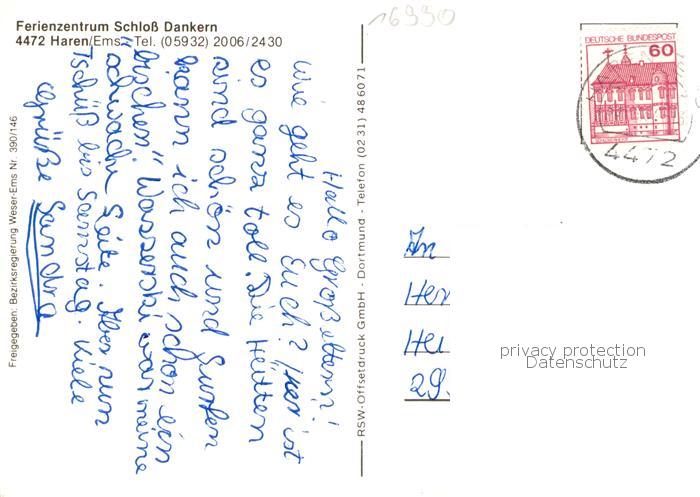 Ferienzentrum Schloß Dankern
4472 Haren/Ems - Tel. (05932) 2006/2430
Hallo Großeltern!
wie geht es Euch? Hier ist
es ganz toll. Die Hütten
sind schön und Surfen
kann ich auch schon ein
bischen". Wasserski war meine
schwache Seite. Aber nun
Tschüß bis Samstag. Viele
Grüße Sandra
Freigegeben: Bezirksregierung Weser-Ems Nr. 390/146
RSW-Offsetdruck GmbH - Dortmund - Telefon (0231) 486071
16990
DEUTSCHE BUNDESPOST
60
4472
An
Her
Hei
29.
privacy protection
Datenschutz